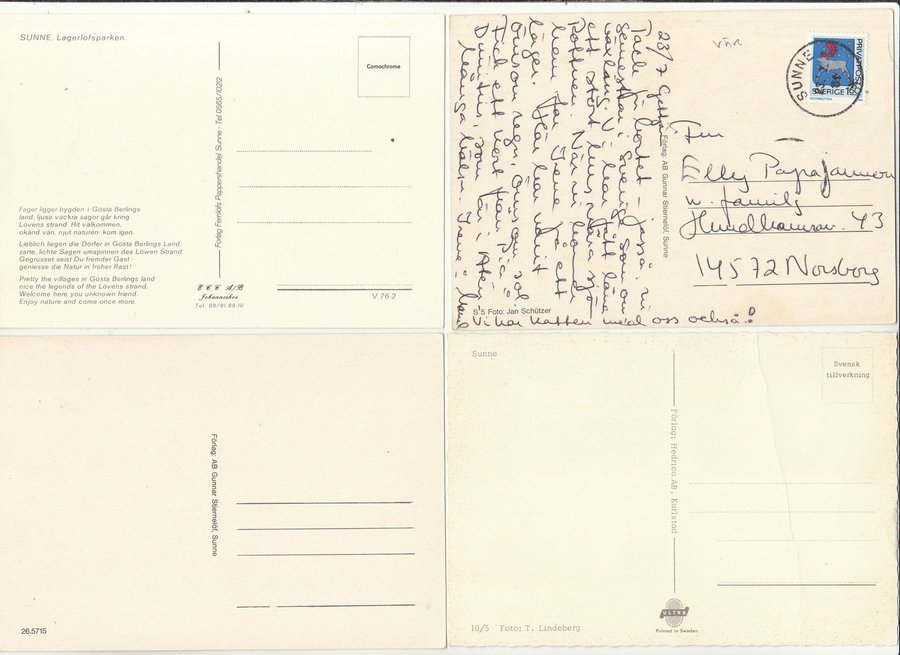 SUNNE, Lagerlöfsparken.
Comochrome
Förlag Fernlöfs Pappershandel Sunne - Tel. 0565/10202
Fager ligger bygden i Gösta Berlings
land, ljusa vackra sagor går kring
Lövens strand. Hit välkommen,
okänd vän, njut naturen· kom igen.
Lieblich liegen die Dörfer in Gösta Berlings Land,
zarte, lichte Sagen umspinnen des Löwen Strand.
Gegrüsset seist Du fremder Gast -
geniesse die Natur in froher Rast!
Pretty the villages in Gösta Berlings land
nice the legends of the Lövens strand.
Welcome here you unknown friend.
Enjoy nature and come once more.
E C C A/B
Johanneshov
Tel. 08/81 88 10
V 76-2
23/7
Tack för kortet - jasså ni
semestrar i Sverige som om
vi har fått låna
ett stort hus nära sjö
Rottnen. När vi kommer
hem far Irene på ett
läger. Här har varit
ömsom regn, ömsom sol.
Fick ett kort från Pia
Många häls. Irene
Vi har katten med oss också!
Förlag: AB Gunnar Stiernelöf, Sunne
S 5 Foto: Jan Schützer
VÄNR
SUNNE
PRIVATPOST
SVERIGE 160
Fam
Elly Papajannem
m. familj
43
14572 Norsborg
Förlag: AB Gunnar Stiernelöf, Sunne
26.5715
Sunne
Svensk
tillverkning
Förlag: Hedrico AB, Karlstad
ULTRA
Printed in Sweden
10/5 Foto: T. Lindeberg